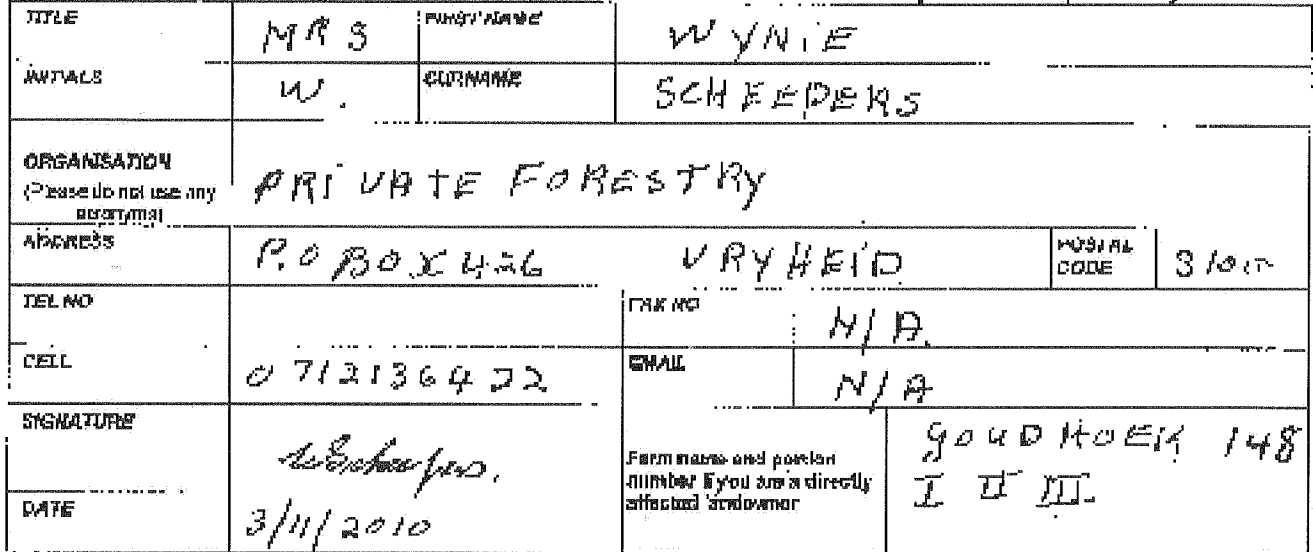 TITLE MRS FIRST NAME WYNIE
INITIALS W. SURNAME SCHEEPERS
ORGANISATION
(Please do not use any acronyms) PRIVATE FORESTRY
ADDRESS P.O BOX 426 VRYHEID POSTAL CODE
TEL NO FAX NO N/A.
CELL 0712136422 EMAIL N/A
SIGNATURE
Farm name and portion number if you are a directly affected landowner GOUDHOEK 148
I II III
DATE 3/11/2010